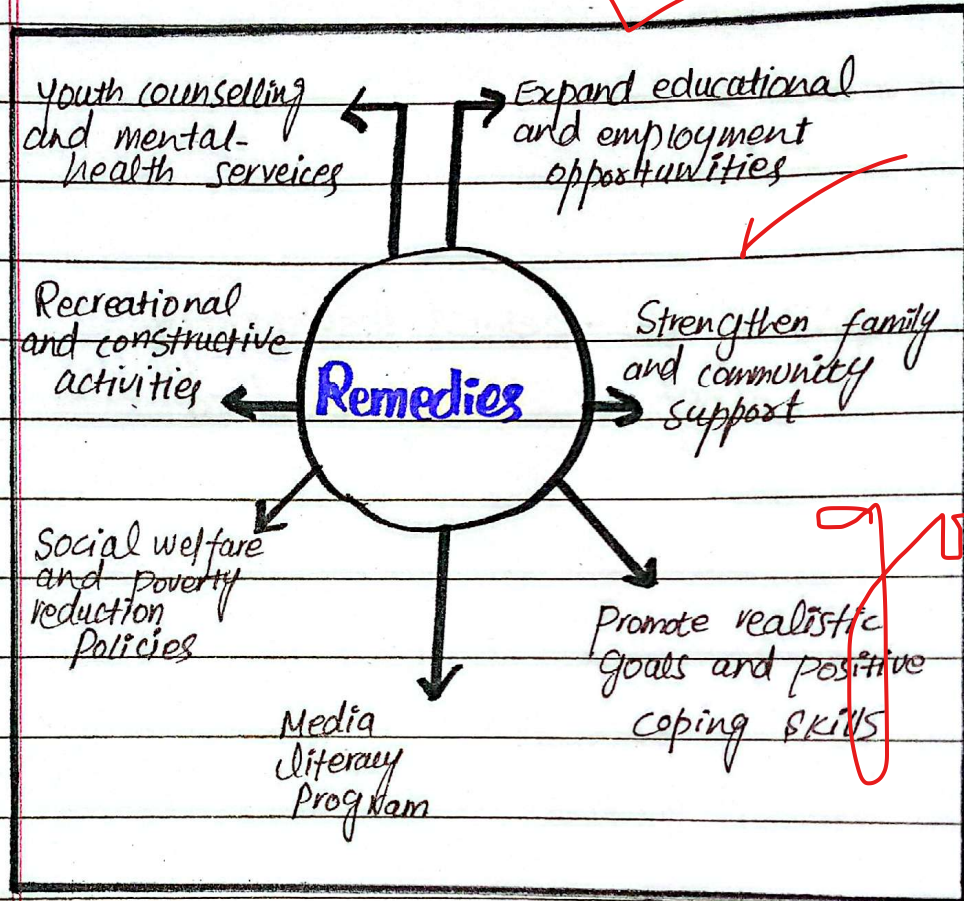 Youth counselling
and mental-
health serveices
Expand educational
and employment
opportunities
Recreational
and constructive
activities
Remedies
Strengthen family
and community
support
Social welfare
and poverty
reduction
Policies
Promote realistic
goals and positive
coping skills
Media
literacy
Program